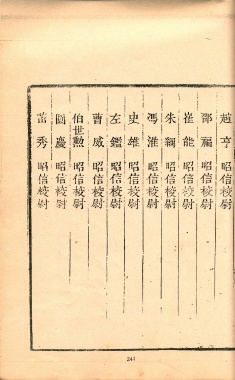 趙亨 昭信校尉
邵福 昭信校尉
崔能 昭信校尉
朱綱 昭信校尉
馮淮 昭信校尉
史雄 昭信校尉
左鑑 昭信校尉
曹威 昭信校尉
伯世勲 昭信校尉
慶 昭信校尉
秀 昭信校尉
241